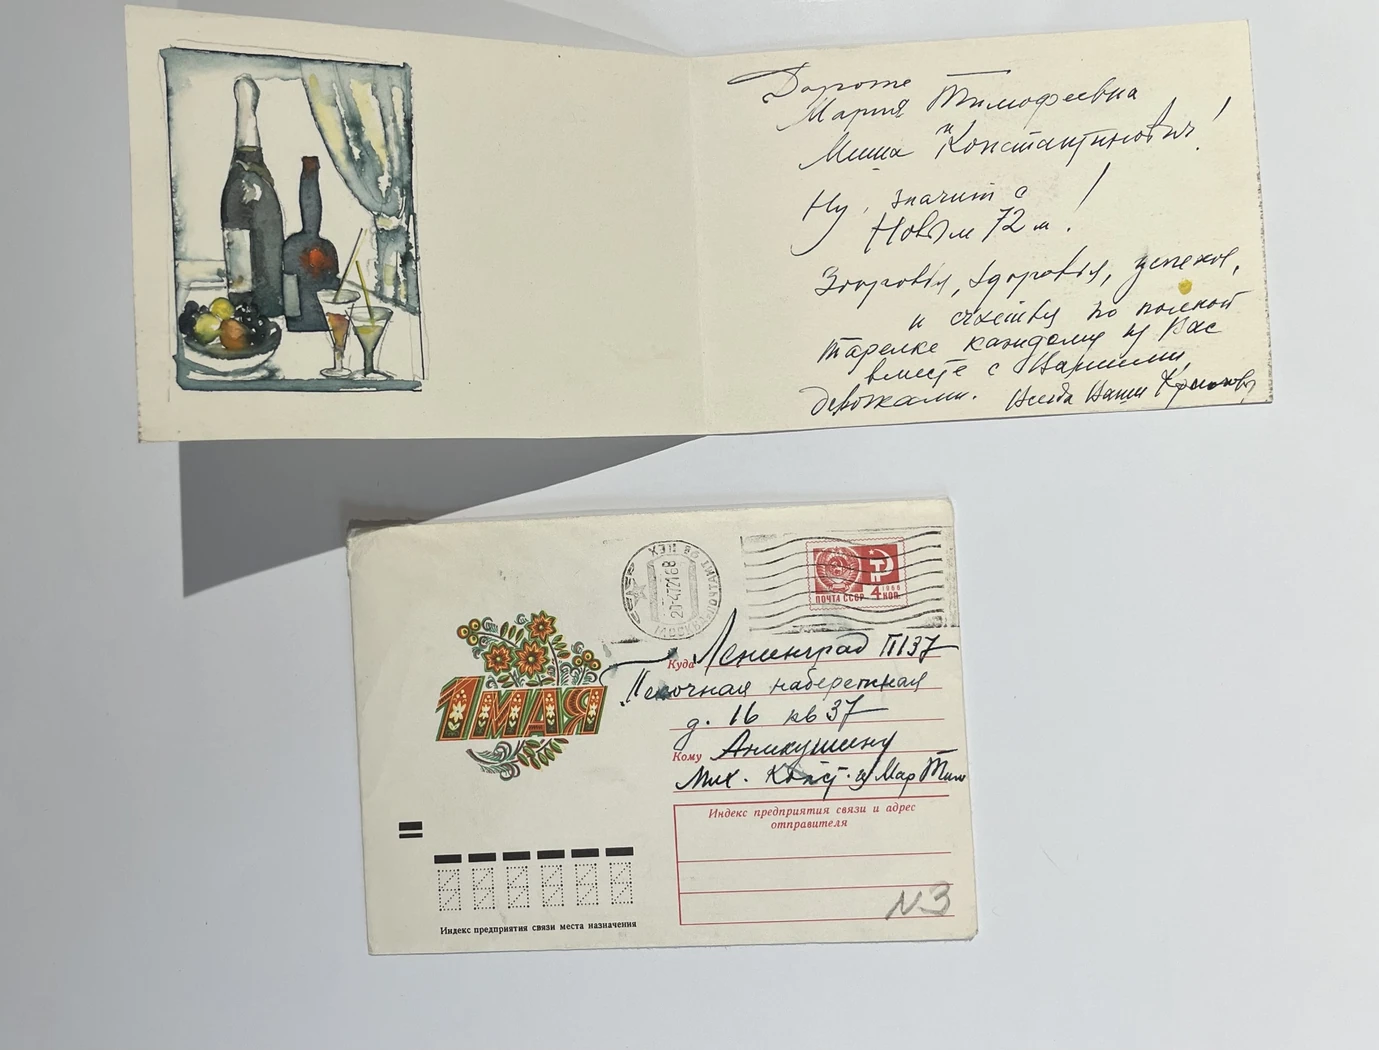 Дорогие
Мария Тимофеевна
и
Миша Константинович!
Ну, значит с
Новым 72 м!
Здоровья, здоровья, успехов,
и счастья по полной
тарелке каждому из Вас
вместе с Вашими
Всегда Ваши
МОСКВА
ПОЧТАМТ
20-4 72 18
ПОЧТА СССР 4 КОП.
1966
1 МАЯ
Куда Ленинград П137
Песочная набережная
д. 16 кв 37
Кому Аникушину
Мих. Конст. и Мар Тим
Индекс предприятия связи и адрес
отправителя
N3
Индекс предприятия связи места назначения